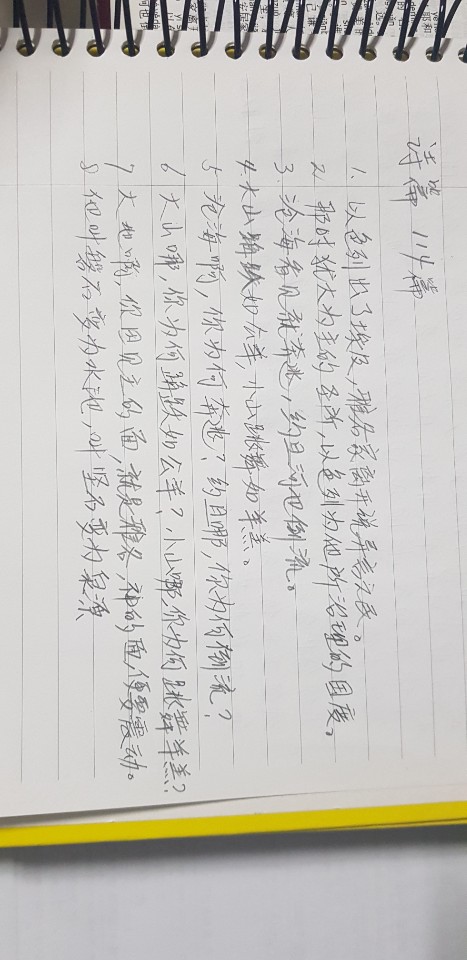 诗篇 114篇
1. 以色列出了埃及，雅各家离开说异言之民。
2. 那时犹大为主的圣所，以色列为他所治理的国度。
3. 沧海看见就奔逃，约旦河也倒流。
4. 大山踊跃如公羊，小山跳舞如羊羔。
5 沧海啊，你为何奔逃？约旦哪，你为何倒流？
6 大山哪，你为何踊跃如公羊？小山哪，你为何跳舞羊羔？
7 大地啊，你因见主的面，就是雅各，神的面便要震动。
8 他叫磐石变为水池，叫坚石变为泉源